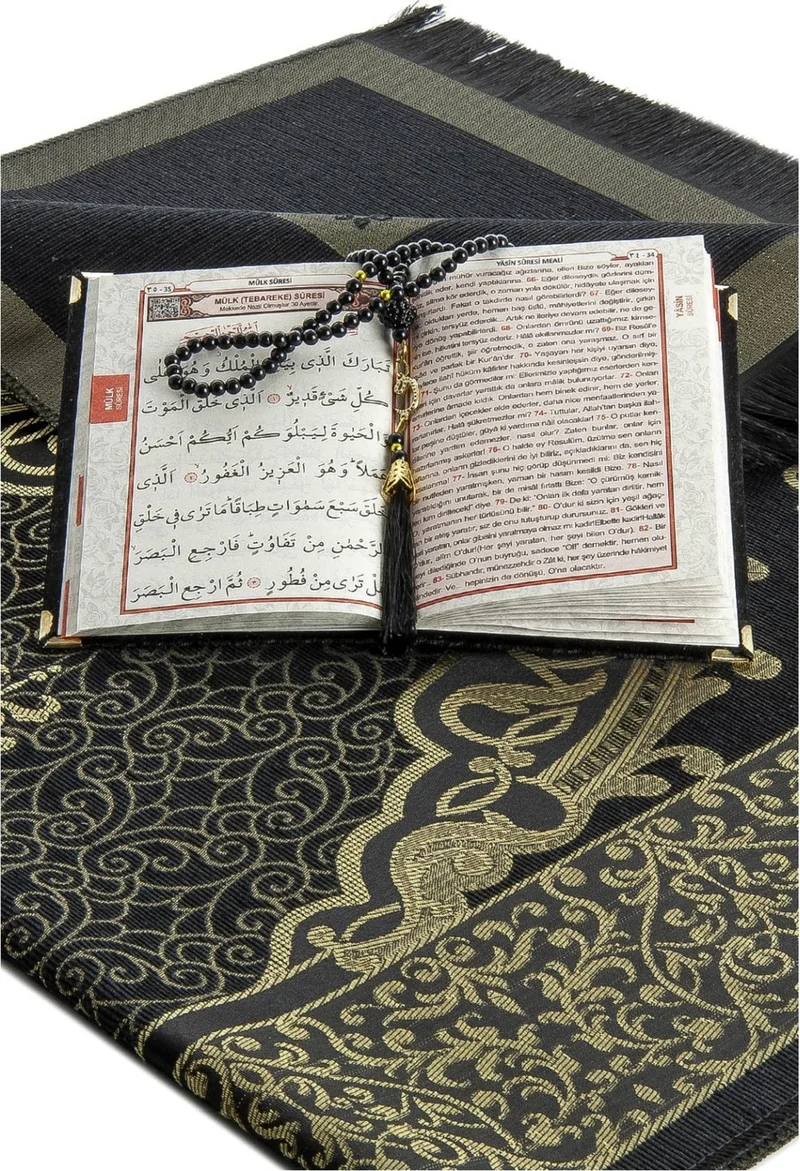 ٣٥ - 35 MÜLK SÛRESİ
MÜLK (TEBAREKE) SÛRESİ
Mekkede Nazil Olmuştur 30 Ayettir.
MÜLK
SÛRESİ
تَبَارَكَ الَّذِى الْمُلْكُ وَهُوَ عَلٰى
كُلِّ شَىْءٍ قَدِيرٌ اَلَّذِى خَلَقَ الْمَوْتَ
وَالْحَيٰوةَ لِيَبْلُوَكُمْ اَيُّكُمْ اَحْسَنُ
عَمَلًا وَهُوَ الْعَزِيزُ الْغَفُورُ اَلَّذِى
خَلَقَ سَبْعَ سَمٰوَاتٍ طِبَاقًا مَا تَرٰى فِى خَلْقِ
الرَّحْمٰنِ مِنْ تَفَاوُتٍ فَارْجِعِ الْبَصَرَ
هَلْ تَرٰى مِنْ فُطُورٍ ثُمَّ ارْجِعِ الْبَصَرَ
YÂSÎN SÛRESİ MEALİ ٣٤ - 34
YÂSÎN
SÛRESİ
mühür vuracağız ağızlarına, elleri Bizo söyler, ayakları
eder, kendi yaptıklarına. 66- Eğer dileseydik gözlerini düm-
silme kör ederdik, o zaman yola dökülür, hidayete ulaşmak için
Fakat o takdirde nasıl görebilirlerdi? 67- Eğer dilesey-
oldukları yerde, hemen başka
tersyüz ederdik... Artık ne ileriye devam edebilir, ne de ge-
dönüş yapabilirlerdi. 68- Onlardan ömrünü uzattığımız kimse-
ise, hilkatini tersyüz ederiz. Hâlâ akıllanmazlar mı? 69- Biz Resûl'e
öğrettik, şiir öğretmedik, o zaten ona yaraşmaz. O sırf bir
ve parlak bir Kur'ân'dır. 70- Yaşayan her kişiyi uyarsın diye,
hüküm kâfirler hakkında kesinleşsin diye, gönderilmiş-
71- Şunu da görmezler mi: Ellerimizle yaptığımız eserlerden ken-
için davarlar yarattık da onlara mâlik bulunuyorlar. 72- Onları
âmade kıldık. Onlardan hem binek edinirler, hem de yerler.
73- Onlardan içecekler elde ederler, daha nice menfaatlenden ya-
Hâlâ şükretmezler mi? 74- Tuttular, Allah'tan başka ilah-
peşine düştüler, güya ki yardıma nâil olacaklar! 75- O putlar ken-
yardım edemezler, nasıl olur? Zaten bunlar, onlar için
askerler! 76- O halde ey Resulüm, üzülme sen onların
onların gizlediklerini de iyi biliriz, açıkladıklarını da, sen hiç
77- İnsan şunu hiç görüp düşünmedi mi: Biz kendisini
nutfeden yaratmışken, yaman bir hasım kesildi Bize. 78- Nasıl
yaratıldığını unutarak, bir de misâl fırlattı Bize: "O çürümüş kemik-
kim diriltecek! diye. 79- De ki: "Onları ilk defa yaratan diriltir, hem
O, yaratmanın her türlüsünü bilir." 80- O'dur ki sizin için yeşil ağaç-
bir ateş yaratır, siz de onu tutuşturup durursunuz. 81- Gökleri ve
yeri yaratan, onlar gibisini yaratmaya olmaz mı kadir! Elbette kadir! Hallâk
O'dur, alîm O'dur (Her şeyi yaratan, her şeyi bilen O'dur). 82- Bir
şeyi dilediğinde O'nun buyruğu, sadece "Ol!" demektir, hemen olu-
verir. 83- Sübhandır, münezzehdir o Zât ki, her şey üzerinde hâkimiyet
elindedir Ve... hepinizin de dönüşü, O'na olacaktır.